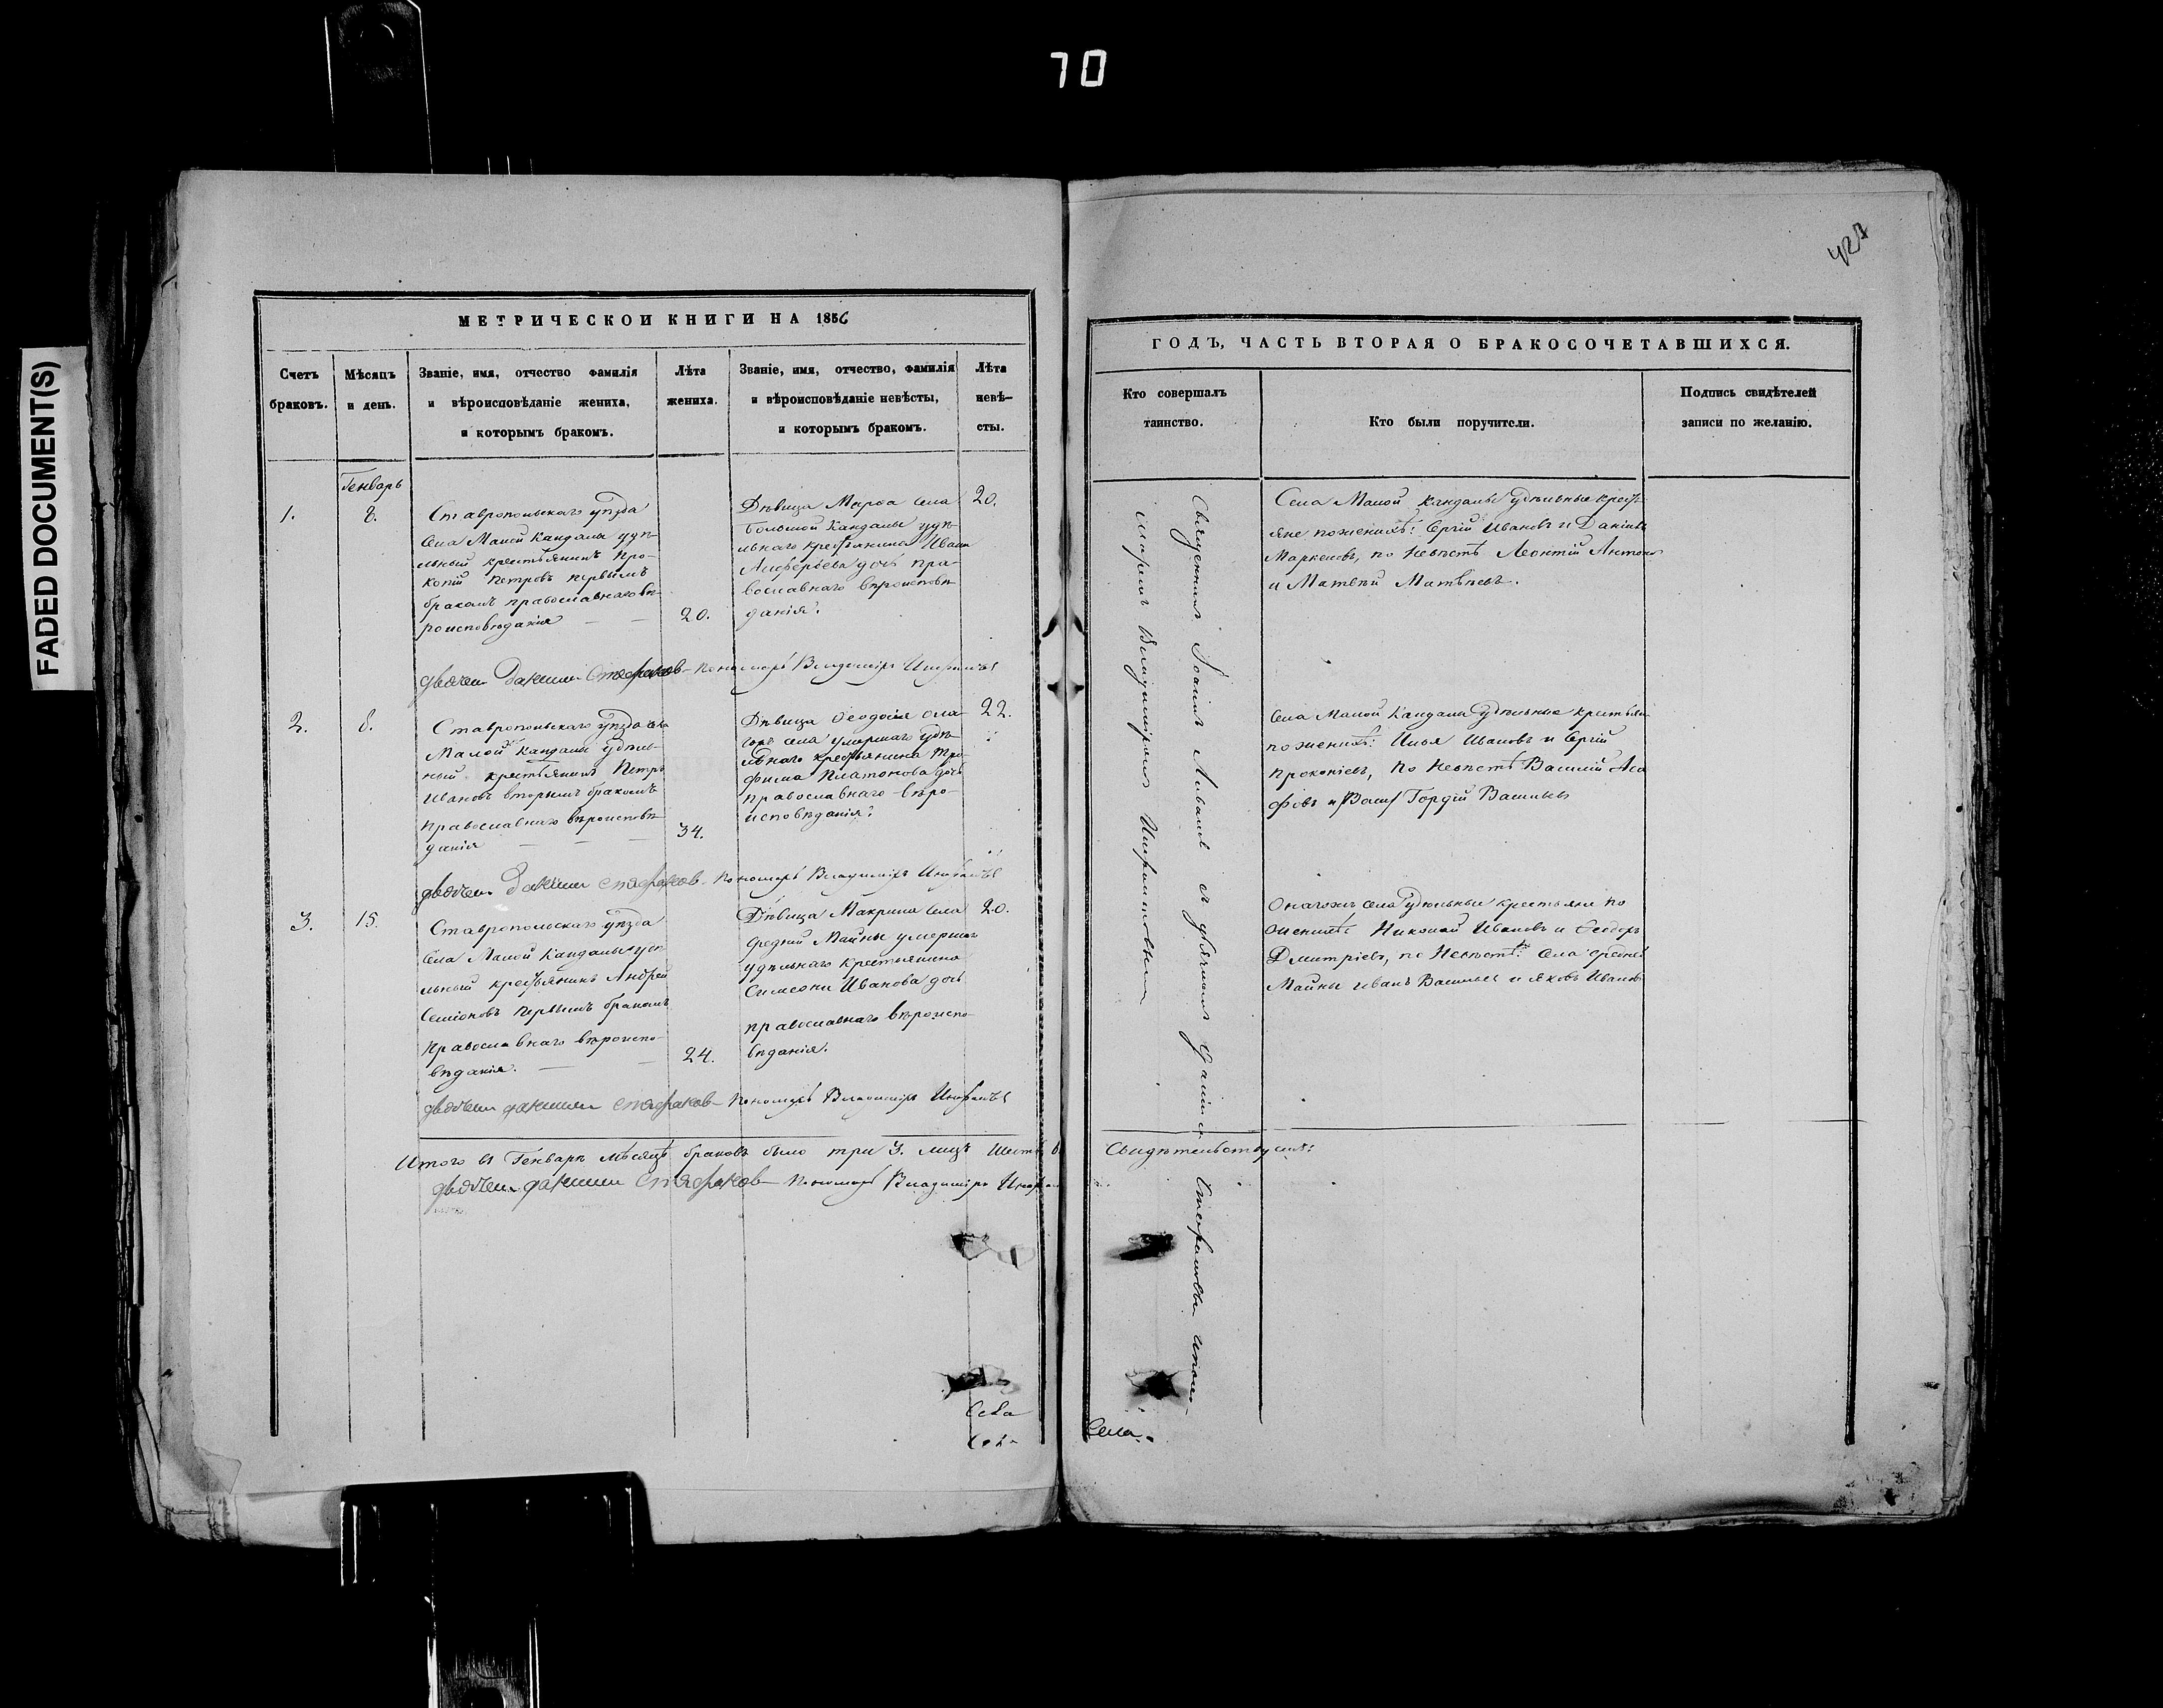 70
FADED DOCUMENT(S)
427
МЕТРИЧЕСКОЙ КНИГИ НА 1856
Счетъ браковъ.
Мѣсяцъ и день.
Званіе, имя, отчество фамилія и вѣроисповѣданіе жениха, и которымъ бракомъ.
Лѣта жениха.
Званіе, имя, отчество, фамилія и вѣроисповѣданіе невѣсты, и которымъ бракомъ.
Лѣта невѣсты.
Генварь
1.
8.
Ставропольскаго уѣзда
Села Малой Кандалы удѣ-
льный крестьянинъ Про-
копій Петровъ первымъ
бракомъ православнаго вѣ-
роисповѣданія
20.
Дѣвица Марѳа Села
Большой Кандалы удѣ-
льнаго крестьянина Ивана
Алферьева дочь пра-
вославнаго вѣроисповѣ-
данія.
20.
Пономарь Владиміръ
2.
8.
Ставропольскаго уѣзда села
Малой Кандалы удѣль-
ный крестьянинъ Петръ
Ивановъ вторымъ бракомъ
православнаго вѣроисповѣ-
данія
34.
Дѣвица Ѳеодосія она-
гожъ села умершаго удѣ-
льнаго крестьянина Тро-
фима Платонова дочь
православнаго вѣро-
исповѣданія.
22.
Пономарь Владиміръ
3.
15.
Ставропольскаго уѣзда
Села Малой Кандалы удѣ-
льный крестьянинъ Андрей
Семіоновъ первымъ бракомъ
Православнаго вѣроиспо-
вѣданія.
24.
Дѣвица Макрина Села
Средней Майны умершаго
удѣльнаго крестьянина
Симеона Иванова дочь
православнаго вѣроиспо-
вѣданія.
20.
Пономарь Владиміръ
Итого въ Генварѣ мѣсяцѣ браковъ было три 3. лицъ шесть 6
Пономарь Владиміръ
Села
ГОДЪ, ЧАСТЬ ВТОРАЯ О БРАКОСОЧЕТАВШИХСЯ.
Кто совершалъ таинство.
Кто были поручители.
Подпись свидѣтелей записи по желанію.
Священникъ Іоаннъ съ дьячкомъ
Владиміромъ
Села Малой Кандалы удѣльные кресть-
яне по женихѣ: Сергій Ивановъ и Даніилъ
Маркеловъ, по невѣстѣ Леонтій Антоно
и Матвѣй Матвѣевъ.
Села Малой Кандалы удѣльные крестьяне
по женихѣ: Илья Ивановъ и Сергій
Прокопіевъ, по невѣстѣ Василій Ага
фовъ и Гордій Васильевъ
Онагожъ села удѣльные крестьяне по
женихѣ Николай Ивановъ и Ѳеодоръ
Дмитріевъ, по Невѣстѣ: Села Средней
Майны Иванъ Васильевъ и Яковъ Ивановъ
Свидѣтельствуемъ:
Села